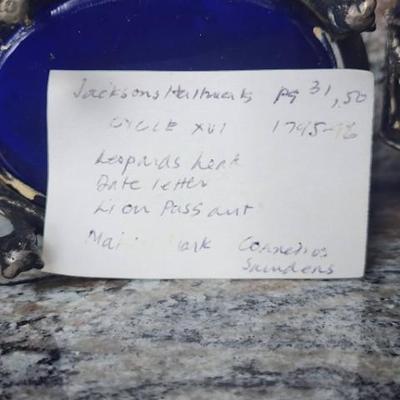 Jacksons Hallmarks pg 31, 50
CYCLE XVI 1795-96
Leopards head
Date letter
Lion Passant
Mark Cornelios
Saunders